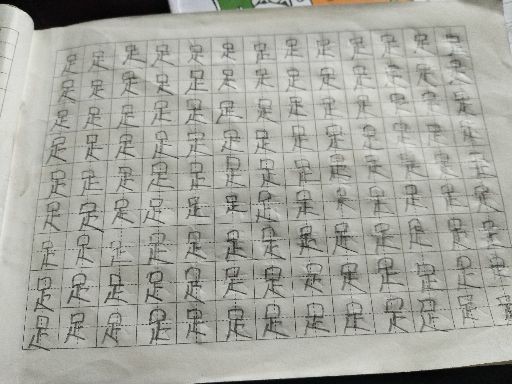 足足足足足足足足足足足足足
足足足足足足足足足足足足足
足足足足足足足足足足足足足
足足足足足足足足足足足足足
足足足足足足足足足足足足足
足足足足足足足足足足足足足
足足足足足足足足足足足足足
足足足足足足足足足足足足足
足足足足足足足足足足足足足